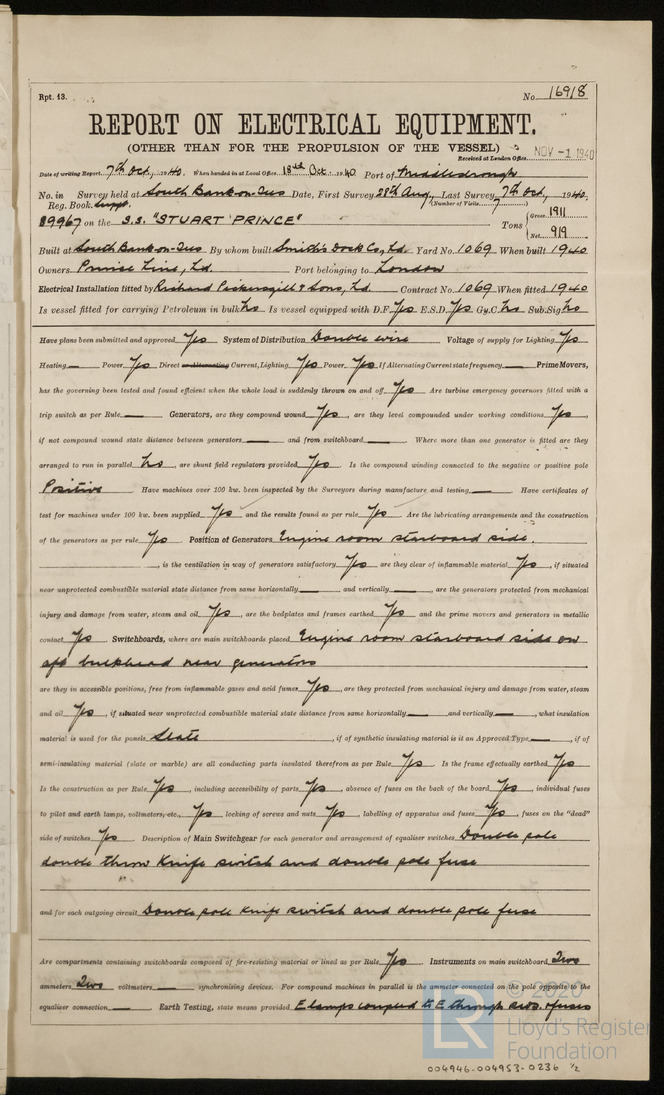 Rpt. 13.
No. 16918
REPORT ON ELECTRICAL EQUIPMENT.
(OTHER THAN FOR THE PROPULSION OF THE VESSEL)
Received at London Office NOV -1 1940
Date of writing Report 7th Oct. 1940. When handed in at Local Office 18th Oct. 1940 Port of Middlesbrough
No. in Survey held at South Bank-on-Tees Date, First Survey 28th Aug. Last Survey 7th Oct. 1940.
Reg. Book. Suppt. (Number of Visits 7)
89967 on the S.S. "STUART PRINCE" Tons { Gross 1911
Net 919
Built at South Bank-on-Tees By whom built Smith's Dock Co, Ld. Yard No. 1069 When built 1940
Owners Prince Line, Ld. Port belonging to London
Electrical Installation fitted by Richard Pickersgill & Sons, Ld. Contract No. 1069 When fitted 1940
Is vessel fitted for carrying Petroleum in bulk No Is vessel equipped with D.F. Yes E.S.D. Yes Gy.C. No Sub.Sig. No
Have plans been submitted and approved Yes System of Distribution Double wire Voltage of supply for Lighting Yes
Heating — Power Yes Direct or Alternating Current, Lighting Yes Power Yes If Alternating Current state frequency — Prime Movers,
has the governing been tested and found efficient when the whole load is suddenly thrown on and off Yes Are turbine emergency governors fitted with a
trip switch as per Rule — Generators, are they compound wound Yes, are they level compounded under working conditions Yes,
if not compound wound state distance between generators — and from switchboard — Where more than one generator is fitted are they
arranged to run in parallel No, are shunt field regulators provided Yes. Is the compound winding connected to the negative or positive pole
Positive Have machines over 100 kw. been inspected by the Surveyors during manufacture and testing — Have certificates of
test for machines under 100 kw. been supplied Yes and the results found as per rule Yes Are the lubricating arrangements and the construction
of the generators as per rule Yes Position of Generators Engine room starboard side.
, is the ventilation in way of generators satisfactory Yes are they clear of inflammable material Yes, if situated
near unprotected combustible material state distance from same horizontally — and vertically —, are the generators protected from mechanical
injury and damage from water, steam and oil Yes, are the bedplates and frames earthed Yes and the prime movers and generators in metallic
contact Yes Switchboards, where are main switchboards placed Engine room starboard side on
aft bulkhead near generators
are they in accessible positions, free from inflammable gases and acid fumes Yes, are they protected from mechanical injury and damage from water, steam
and oil Yes, if situated near unprotected combustible material state distance from same horizontally — and vertically —, what insulation
material is used for the panels Slate, if of synthetic insulating material is it an Approved Type —, if of
semi-insulating material (slate or marble) are all conducting parts insulated therefrom as per Rule Yes Is the frame effectually earthed Yes
Is the construction as per Rule Yes, including accessibility of parts Yes, absence of fuses on the back of the board Yes, individual fuses
to pilot and earth lamps, voltmeters, etc., Yes locking of screws and nuts Yes, labelling of apparatus and fuses Yes, fuses on the "dead"
side of switches Yes Description of Main Switchgear for each generator and arrangement of equaliser switches Double pole
double throw knife switch and double pole fuse
and for each outgoing circuit Double pole knife switch and double pole fuse
Are compartments containing switchboards composed of fire-resisting material or lined as per Rule Yes Instruments on main switchboard Two
ammeters Two voltmeters — synchronising devices. For compound machines in parallel is the ammeter connected on the pole opposite to the
equaliser connection — Earth Testing, state means provided E lamps coupled to E through sws. & fuses
© 2020
Lloyd's Register
Foundation
004946-004953-0236 1/2